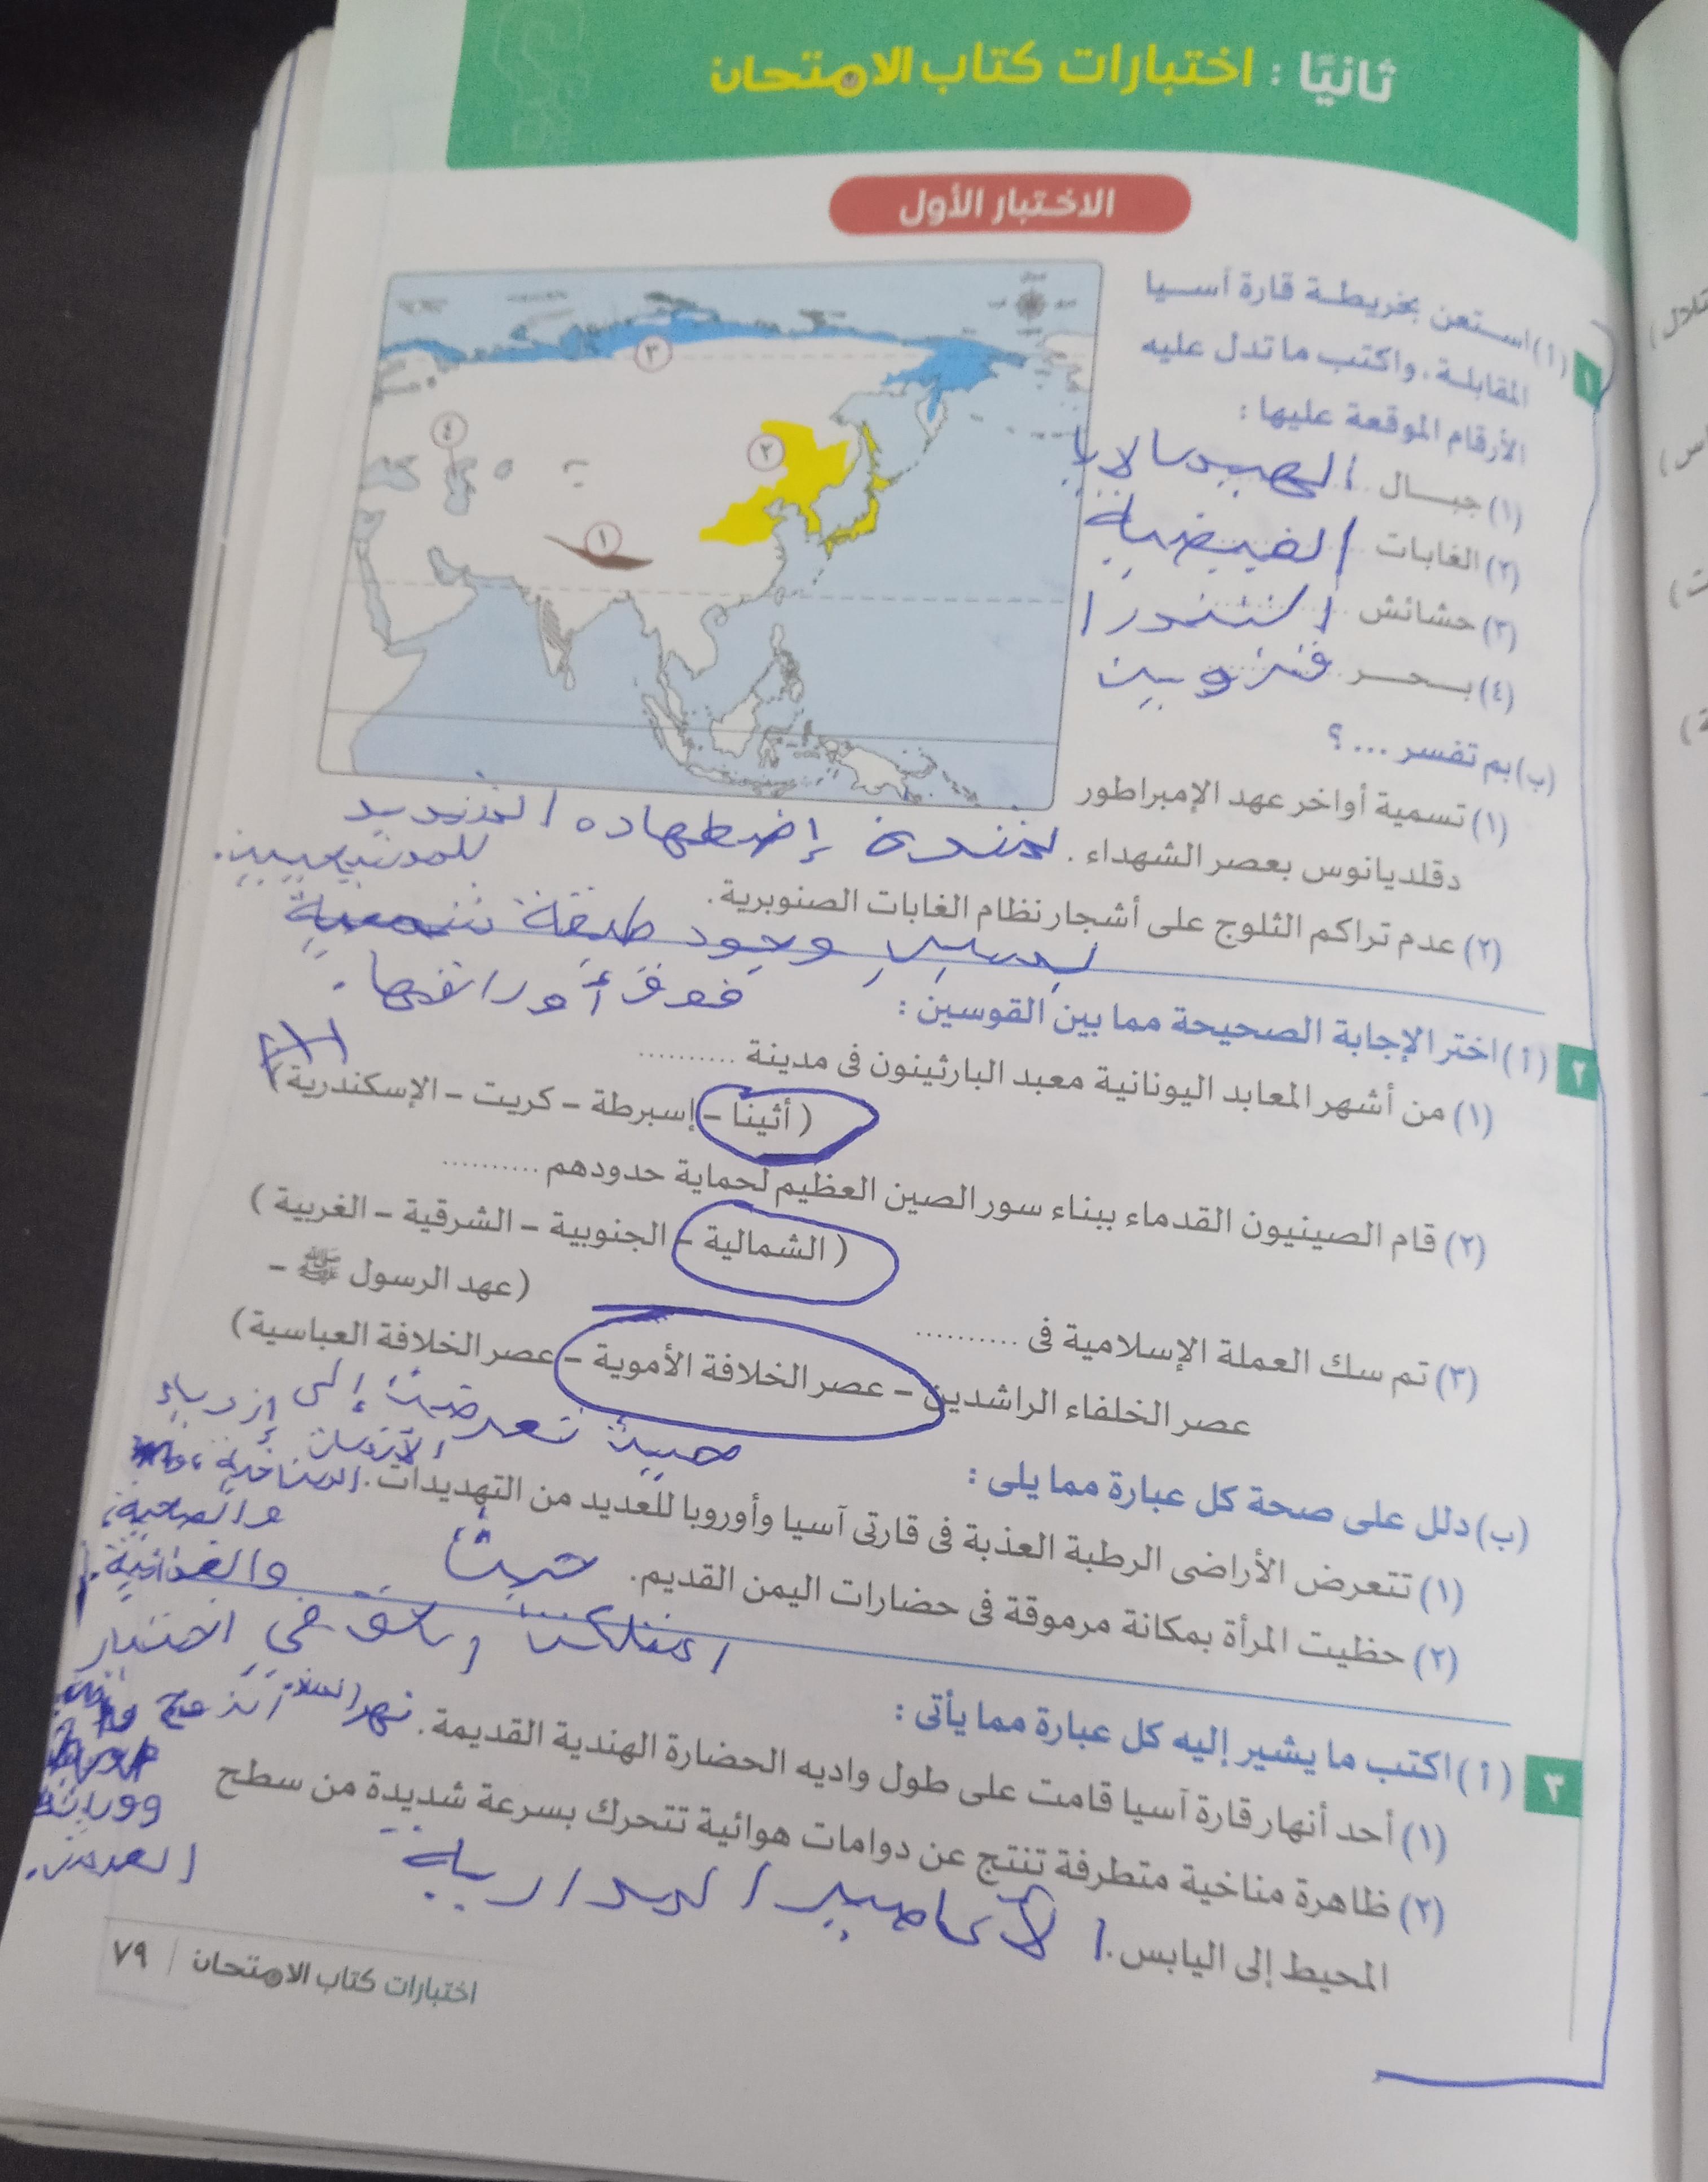 ثانيًا : اختبارات كتاب الامتحان
الاختبار الأول
١
(أ) استعن بخريطة قارة آسيا
المقابلة، واكتب ما تدل عليه
الأرقام الموقعة عليها :
(١) جبال الهيمالايا
(٢) الغابات الفيضية
(٣) حشائش التندرا
(٤) بحر قزوين
٣
٤
٢
١
(ب) بم تفسر ... ؟
(١) تسمية أواخر عهد الإمبراطور
دقلديانوس بعصر الشهداء .
إضطهاده الشديد
للمسيحيين.
(٢) عدم تراكم الثلوج على أشجار نظام الغابات الصنوبرية.
بسبب وجود طبقة شمعية
فوق أوراقها.
٢
(أ) اختر الإجابة الصحيحة مما بين القوسين :
(١) من أشهر المعابد اليونانية معبد البارثينون فى مدينة ..........
( أثينا – إسبرطة – كريت – الإسكندرية )
(٢) قام الصينيون القدماء ببناء سور الصين العظيم لحماية حدودهم ..........
( الشمالية – الجنوبية – الشرقية – الغربية )
(٣) تم سك العملة الإسلامية فى ..........
(عهد الرسول ﷺ –
عصر الخلفاء الراشدين – عصر الخلافة الأموية – عصر الخلافة العباسية )
(ب) دلل على صحة كل عبارة مما يلى :
(١) تتعرض الأراضى الرطبة العذبة فى قارتى آسيا وأوروبا للعديد من التهديدات.
حيث تعرضت إلى
(٢) حظيت المرأة بمكانة مرموقة فى حضارات اليمن القديم.
حيث
فى اختيار
العرش.
٣
(أ) اكتب ما يشير إليه كل عبارة مما يأتى :
(١) أحد أنهار قارة آسيا قامت على طول واديه الحضارة الهندية القديمة. نهر
(٢) ظاهرة مناخية متطرفة تنتج عن دوامات هوائية تتحرك بسرعة شديدة من سطح
المحيط إلى اليابس. الأعاصير المدارية
اختبارات كتاب الامتحان | ٧٩